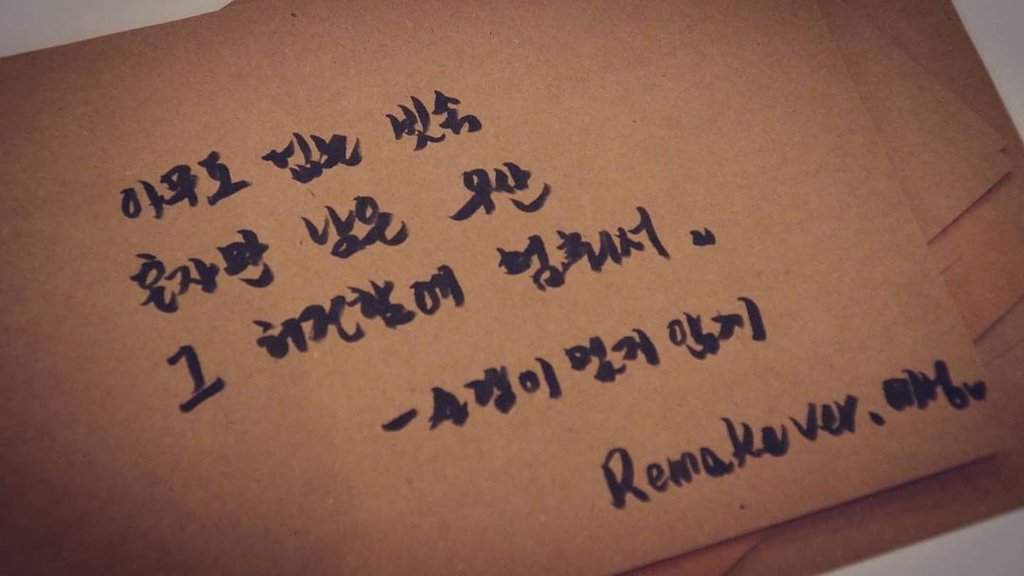 아무도 없는 빗속
혼자만 남은 우산
그 허전함에 멈춰서 ..
멀지 않지
Remake ver.